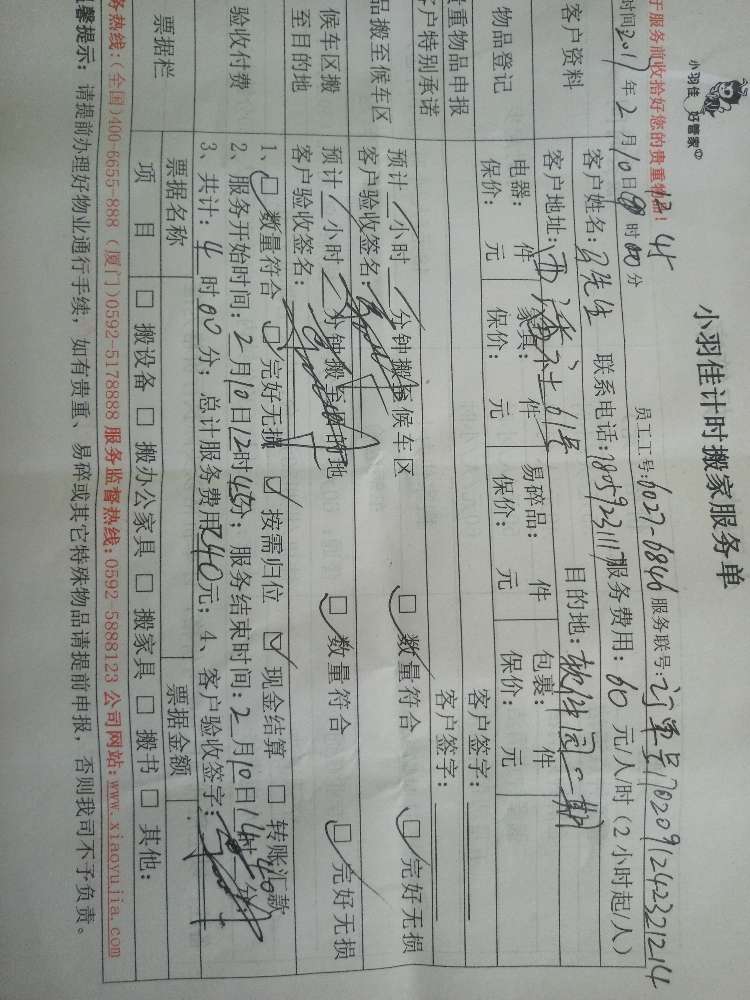 小羽佳 好管家
小羽佳计时搬家服务单
于服务前收拾好您的贵重物品!
员工工号:6027-6846 服务联号:订单号1702091242321214
时间2017年2月10日 时00分
12 45
客户资料
客户姓名: 先生 联系电话:18059231117 服务费用:60元/人/时(2小时起/人)
客户地址: 61号 目的地:软件园二期
物品登记
电器: 件 家具: 件 易碎品: 件 包裹: 件
保价: 元 保价: 元 保价: 元 保价: 元
贵重物品申报 客户签字:
客户特别承诺 客户签字:
品搬至候车区
预计 小时 分钟搬至候车区 数量符合 完好无损
客户验收签名:
候车区搬至目的地
预计 小时 分钟搬至目的地 数量符合 完好无损
客户验收签名:
验收付费
1、 数量符合 完好无损 按需归位 现金结算 转账汇款
2、服务开始时间:2月10日12时45分;服务结束时间:2月10日 时40分;
3、共计:4时00分;总计服务费用 40元;4、客户验收签字:
票据栏
票据名称 票据金额
项目 搬设备 搬办公家具 搬家具 搬书 其他:
务热线:(全国)400-6655-888 (厦门)0592-5178888 服务监督热线:0592 5888123 公司网站:www.xiaoyujia.com
温馨提示: 请提前办理好物业通行手续,如有贵重、易碎或其它特殊物品请提前申报,否则我司不予负责。